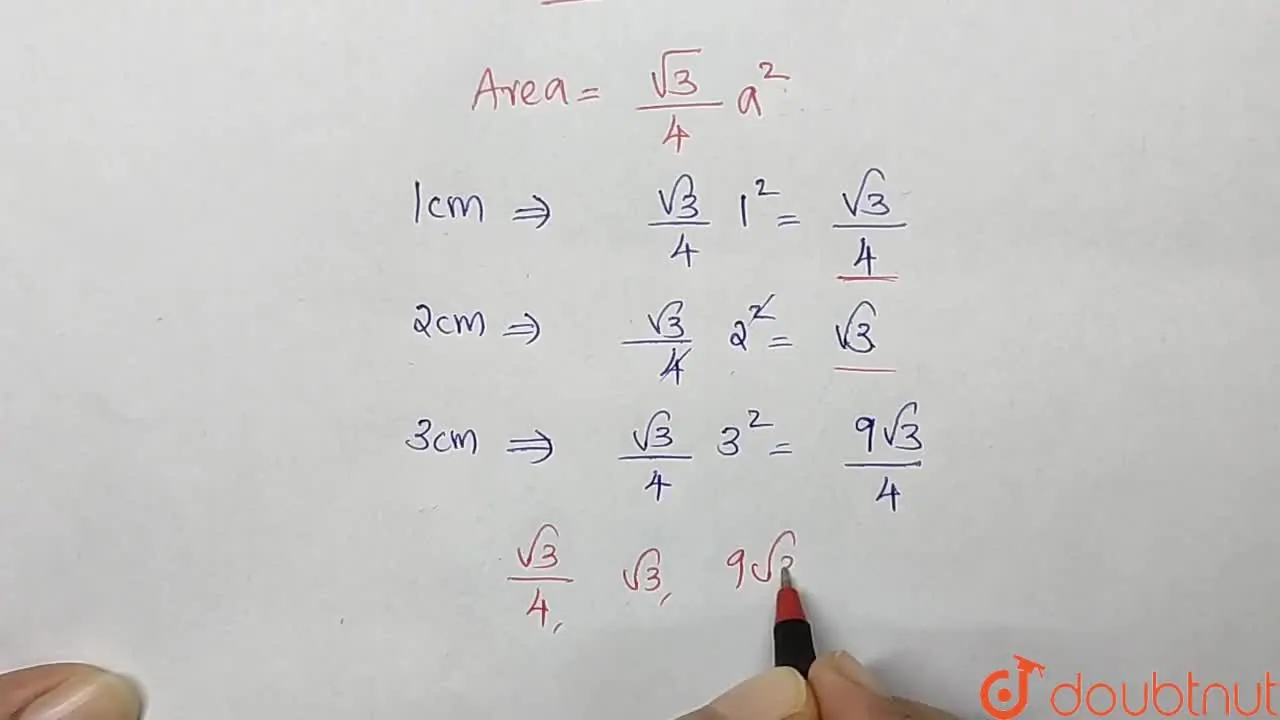 Area = √3/4 a²
1cm ⇒ √3/4 1² = √3/4
2cm ⇒ √3/4 2² = √3
3cm ⇒ √3/4 3² = 9√3/4
√3/4, √3, 9√3
doubtnut